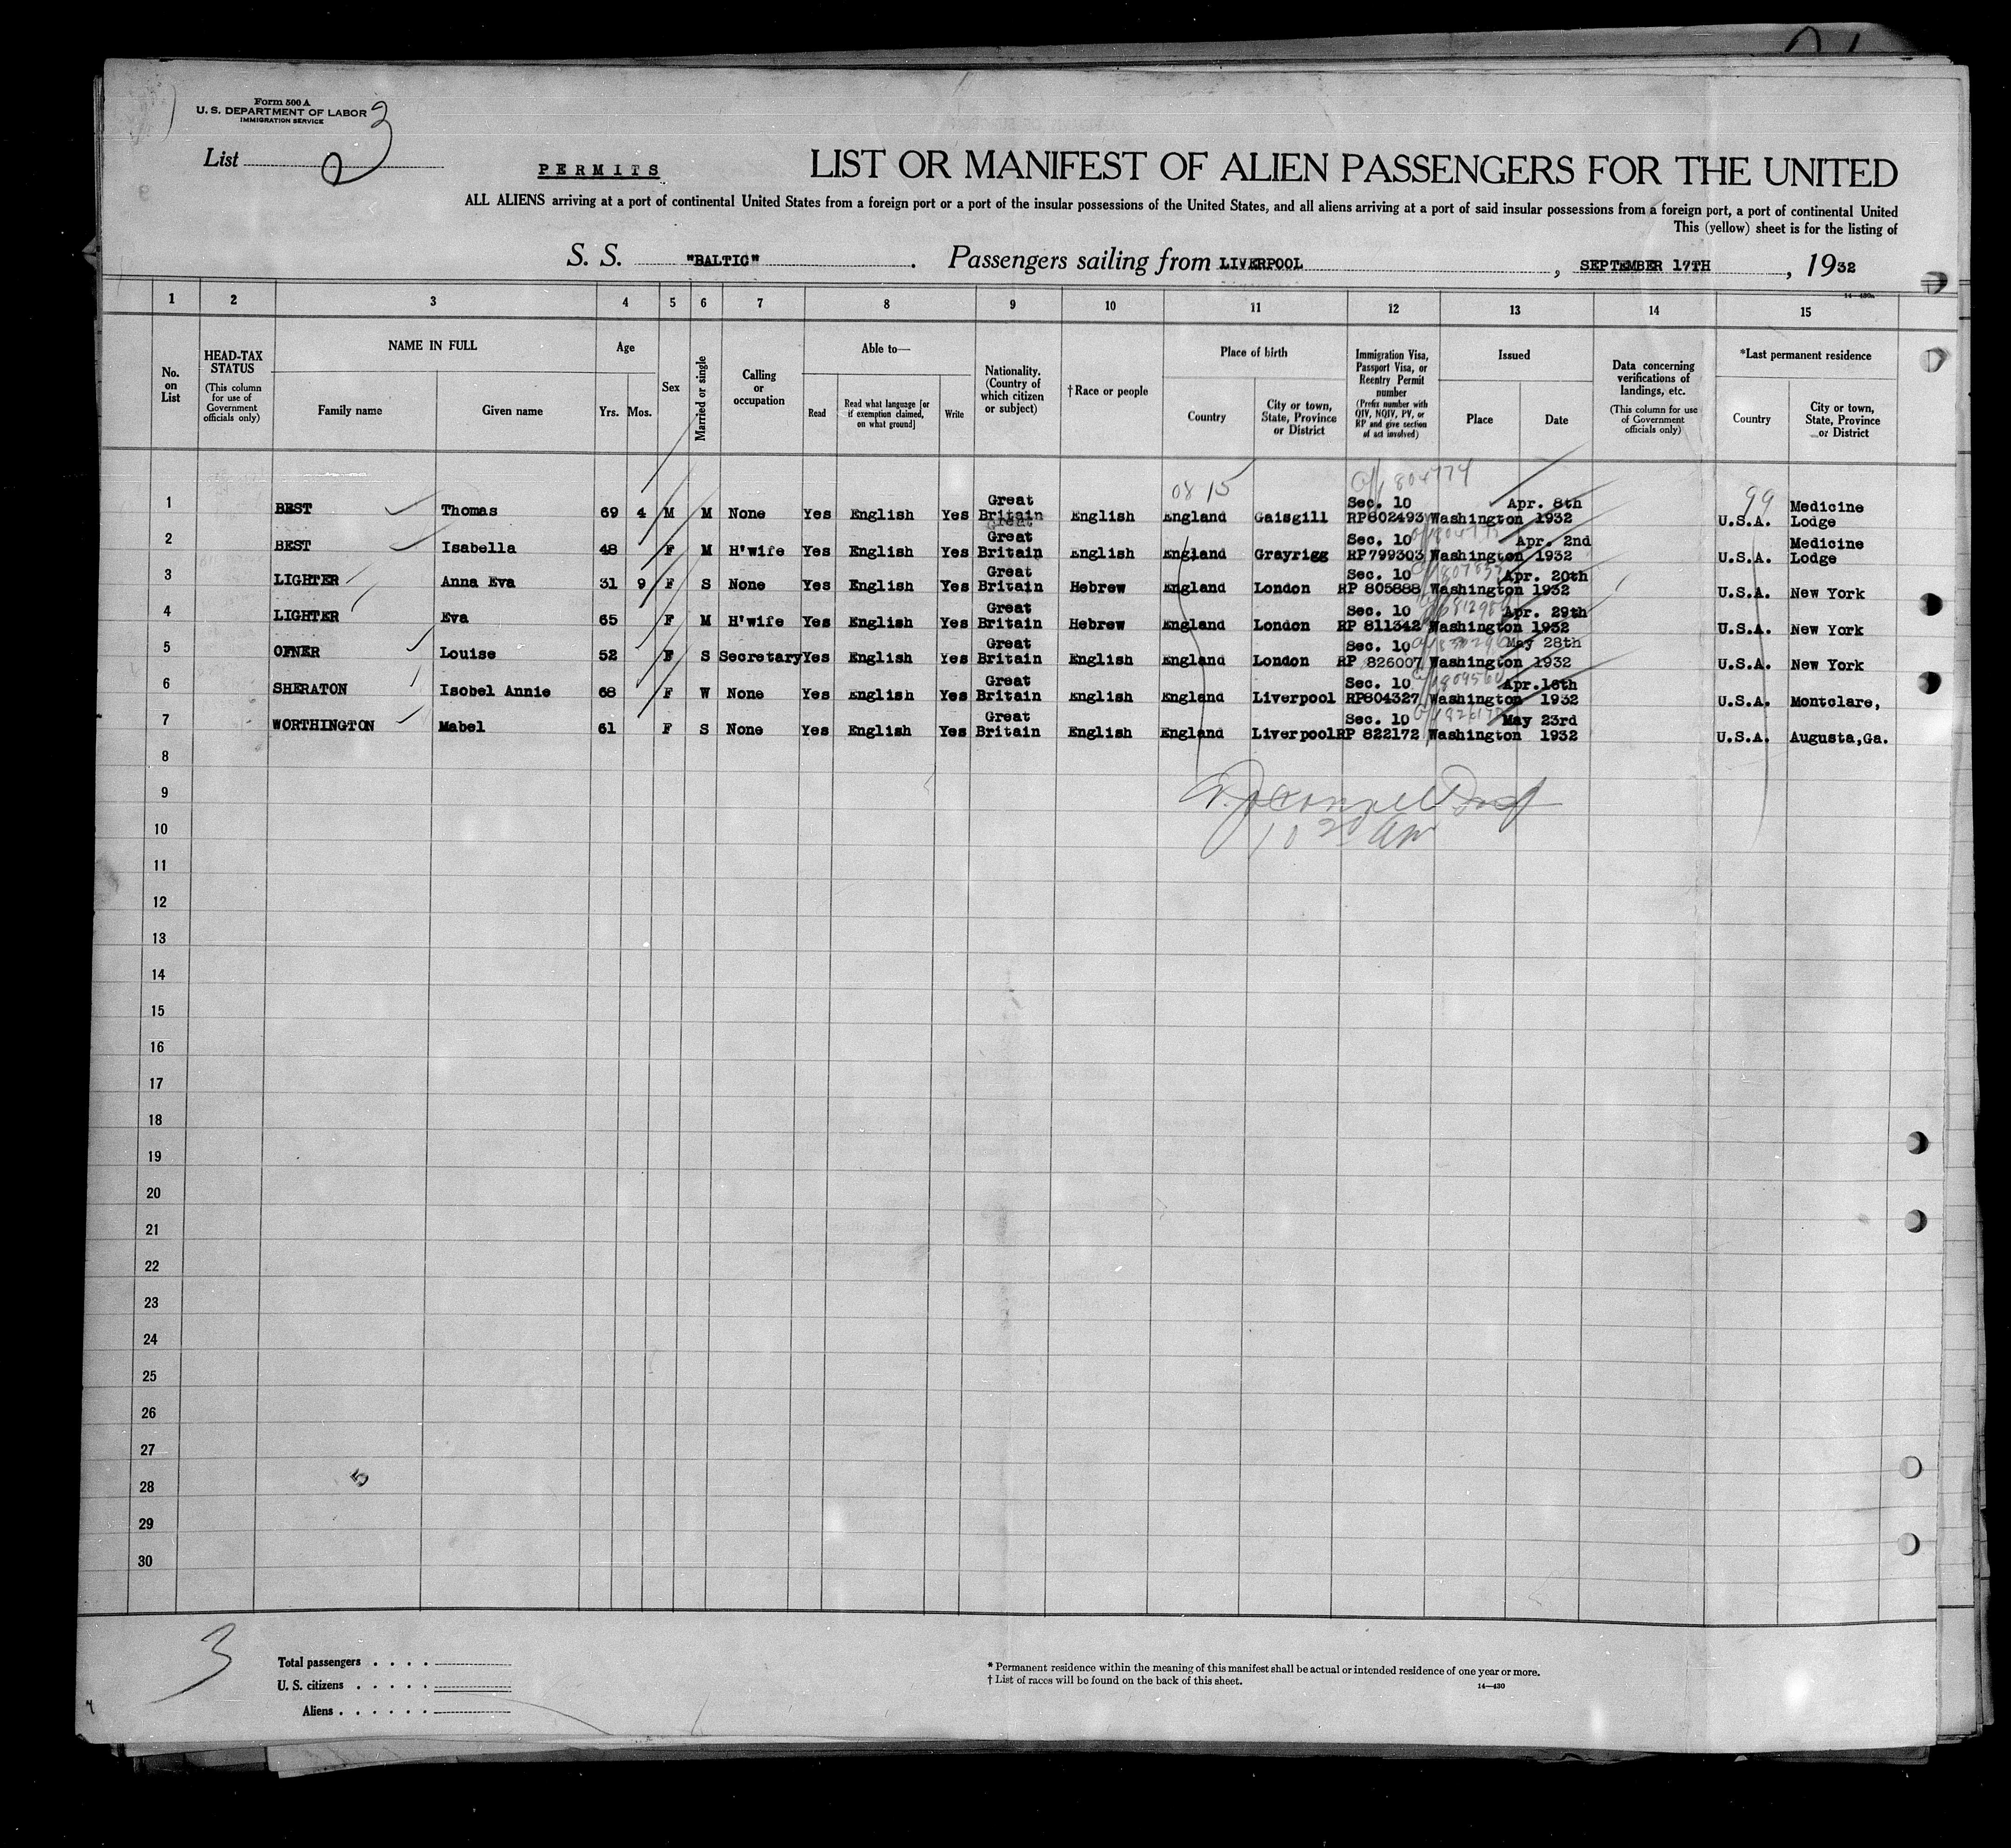 Form 500 A
U. S. DEPARTMENT OF LABOR
IMMIGRATION SERVICE
3
List 2
PERMITS
LIST OR MANIFEST OF ALIEN PASSENGERS FOR THE UNITED
ALL ALIENS arriving at a port of continental United States from a foreign port or a port of the insular possessions of the United States, and all aliens arriving at a port of said insular possessions from a foreign port, a port of continental United
This (yellow) sheet is for the listing of
S. S. "BALTIC". Passengers sailing from LIVERPOOL, SEPTEMBER 17TH, 1932
14—430a
1 2 3 4 5 6 7 8 9 10 11 12 13 14 15
No. on List
HEAD-TAX STATUS (This column for use of Government officials only)
NAME IN FULL
Family name Given name
Age
Yrs. Mos.
Sex
Married or single
Calling or occupation
Able to—
Read
Read what language [or if exemption claimed, on what ground]
Write
Nationality. (Country of which citizen or subject)
† Race or people
Place of birth
Country
City or town, State, Province or District
Immigration Visa, Passport Visa, or Reentry Permit number (Prefix number with QIV, NQIV, PV, or RP and give section of act involved)
Issued
Place Date
Data concerning verifications of landings, etc. (This column for use of Government officials only)
*Last permanent residence
Country
City or town, State, Province or District
08 15 804774 99
1 BEST Thomas 69 4 M M None Yes English Yes Great Britain English England Gaisgill Sec. 10 RP802493 Washington Apr. 8th 1932 U.S.A. Medicine Lodge
2 BEST Isabella 48 F M H'wife Yes English Yes Great Britain English England Grayrigg Sec. 10 RP799303 Washington Apr. 2nd 1932 U.S.A. Medicine Lodge
3 LIGHTER Anna Eva 31 9 F S None Yes English Yes Great Britain Hebrew England London Sec. 10 RP 805888 Washington Apr. 20th 1932 U.S.A. New York
4 LIGHTER Eva 65 F M H'wife Yes English Yes Great Britain Hebrew England London Sec. 10 RP 811342 Washington Apr. 29th 1932 U.S.A. New York
5 OFNER Louise 52 F S Secretary Yes English Yes Great Britain English England London Sec. 10 RP 826007 Washington May 28th 1932 U.S.A. New York
6 SHERATON Isobel Annie 68 F W None Yes English Yes Great Britain English England Liverpool Sec. 10 RP804327 Washington Apr.16th 1932 U.S.A. Montclare,
7 WORTHINGTON Mabel 61 F S None Yes English Yes Great Britain English England Liverpool Sec. 10 RP 822172 Washington May 23rd 1932 U.S.A. Augusta,Ga.
8
9
10 10 20 am
11
12
13
14
15
16
17
18
19
20
21
22
23
24
25
26
27
28
29
30
5
3
Total passengers . . . .
U. S. citizens . . . . .
Aliens . . . . . .
* Permanent residence within the meaning of this manifest shall be actual or intended residence of one year or more.
† List of races will be found on the back of this sheet.
14—430